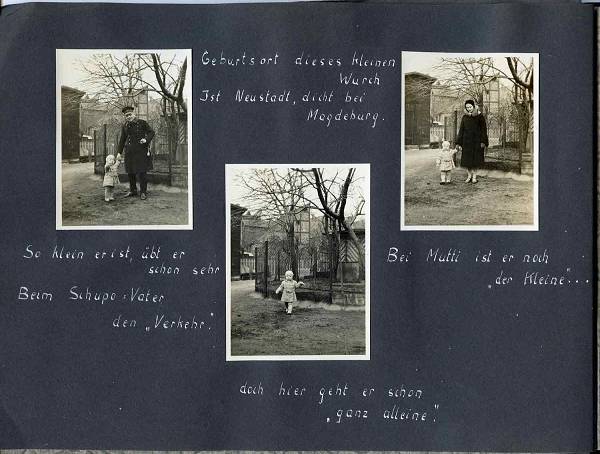 Geburtsort dieses kleinen
Wurch
Ist Neustadt, dicht bei
Magdeburg.
So klein er ist, übt er
schon sehr
Beim Schupo-Vater
den „Verkehr".
Bei Mutti ist er noch
„der Kleine"...
doch hier geht er schon
„ganz alleine".